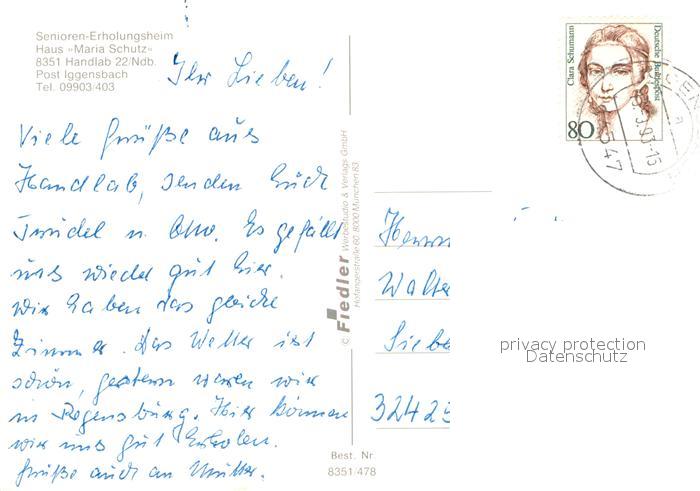 Senioren-Erholungsheim
Haus »Maria Schutz«
8351 Handlab 22/Ndb.
Post Iggensbach
Tel. 09903/403
Ihr Lieben!
Viele Grüße aus
Handlab, senden Euch
Trudel u. Otto. Es gefällt
uns wieder gut hier.
Wir haben das gleiche
Zimmer. Das Wetter ist
schön, gestern waren wir
in Regensburg. Hier können
wir uns gut erholen.
Grüße auch an Mutter.
© Fiedler Werbestudio & Verlags GmbH
Hofangerstraße 80, 8000 München 83
Best. Nr
8351/478
Clara Schumann
Deutsche Bundespost
80
Herrn
Walte
Siebe
32425
privacy protection
Datenschutz